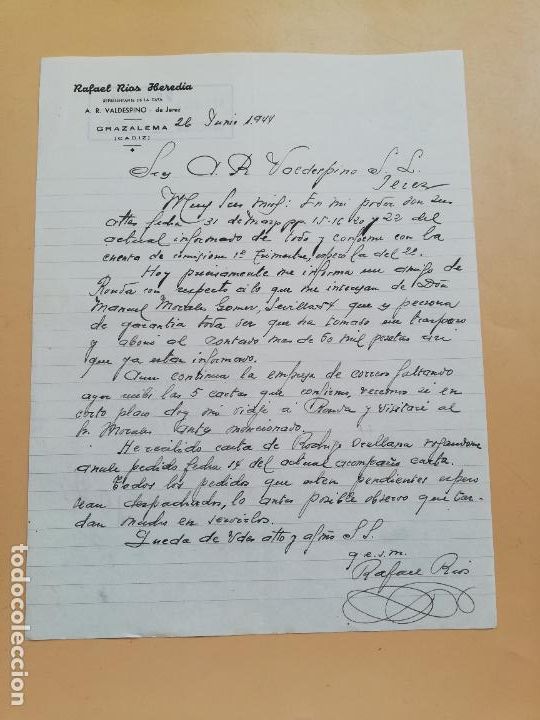 Rafael Rios Heredia
REPRESENTANTE DE LA CASA
A. R. VALDESPINO - de Jerez
GRAZALEMA
(CADIZ)
26 Junio 1944
Sres A. R Valdespino S. L.
Jerez
Muy Sres mios: En mi poder son sus
attas fecha 31 de Marzo pp. 15-16 20 y 22 del
actual informado de todo y conforme con la
cuenta de comisiones 1º Trimestre, espero la del 2º.
Hoy precisamente me informa un amigo de
Ronda con respecto a lo que me interesan de Don
Manuel Morales Gomez, Sevilla 54 que es persona
de garantia toda vez que ha tomado un traspaso
y abonó al contado mas de 60 mil pesetas asi
que ya estan informados.
Aun continua la empresa de correos faltando
ayer recibi las 5 cartas que confirmo, veremos si en
corto plazo doy mi viaje a Ronda y visitaré al
Sr Morales antes mencionado.
He recibido carta de Rodrigo Orellana rogandome
anule pedido fecha 14 del actual acompaño carta.
Todos los pedidos que esten pendientes espero
sean despachados, lo antes posible observo que tar-
dan mucho en servirlos.
Queda de Vdes atto y afmo S S.
q. e. s. m.
Rafael Rios
todocoleccion